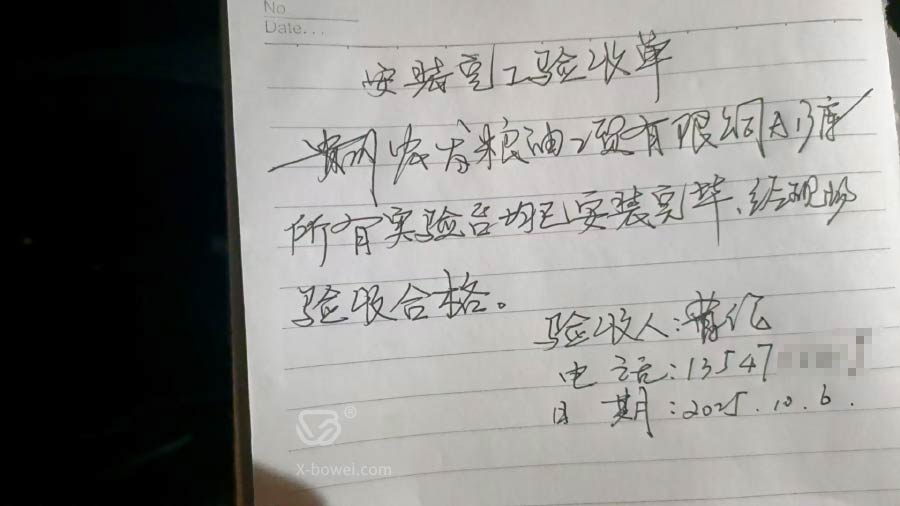 No
Date...
安装完工验收单
发粮油工贸有限公司
所有实验台均已安装完毕、经现场
验收合格。
验收人:曹
电话:13547
日期:2025.10.6.
®
X-bowei.com